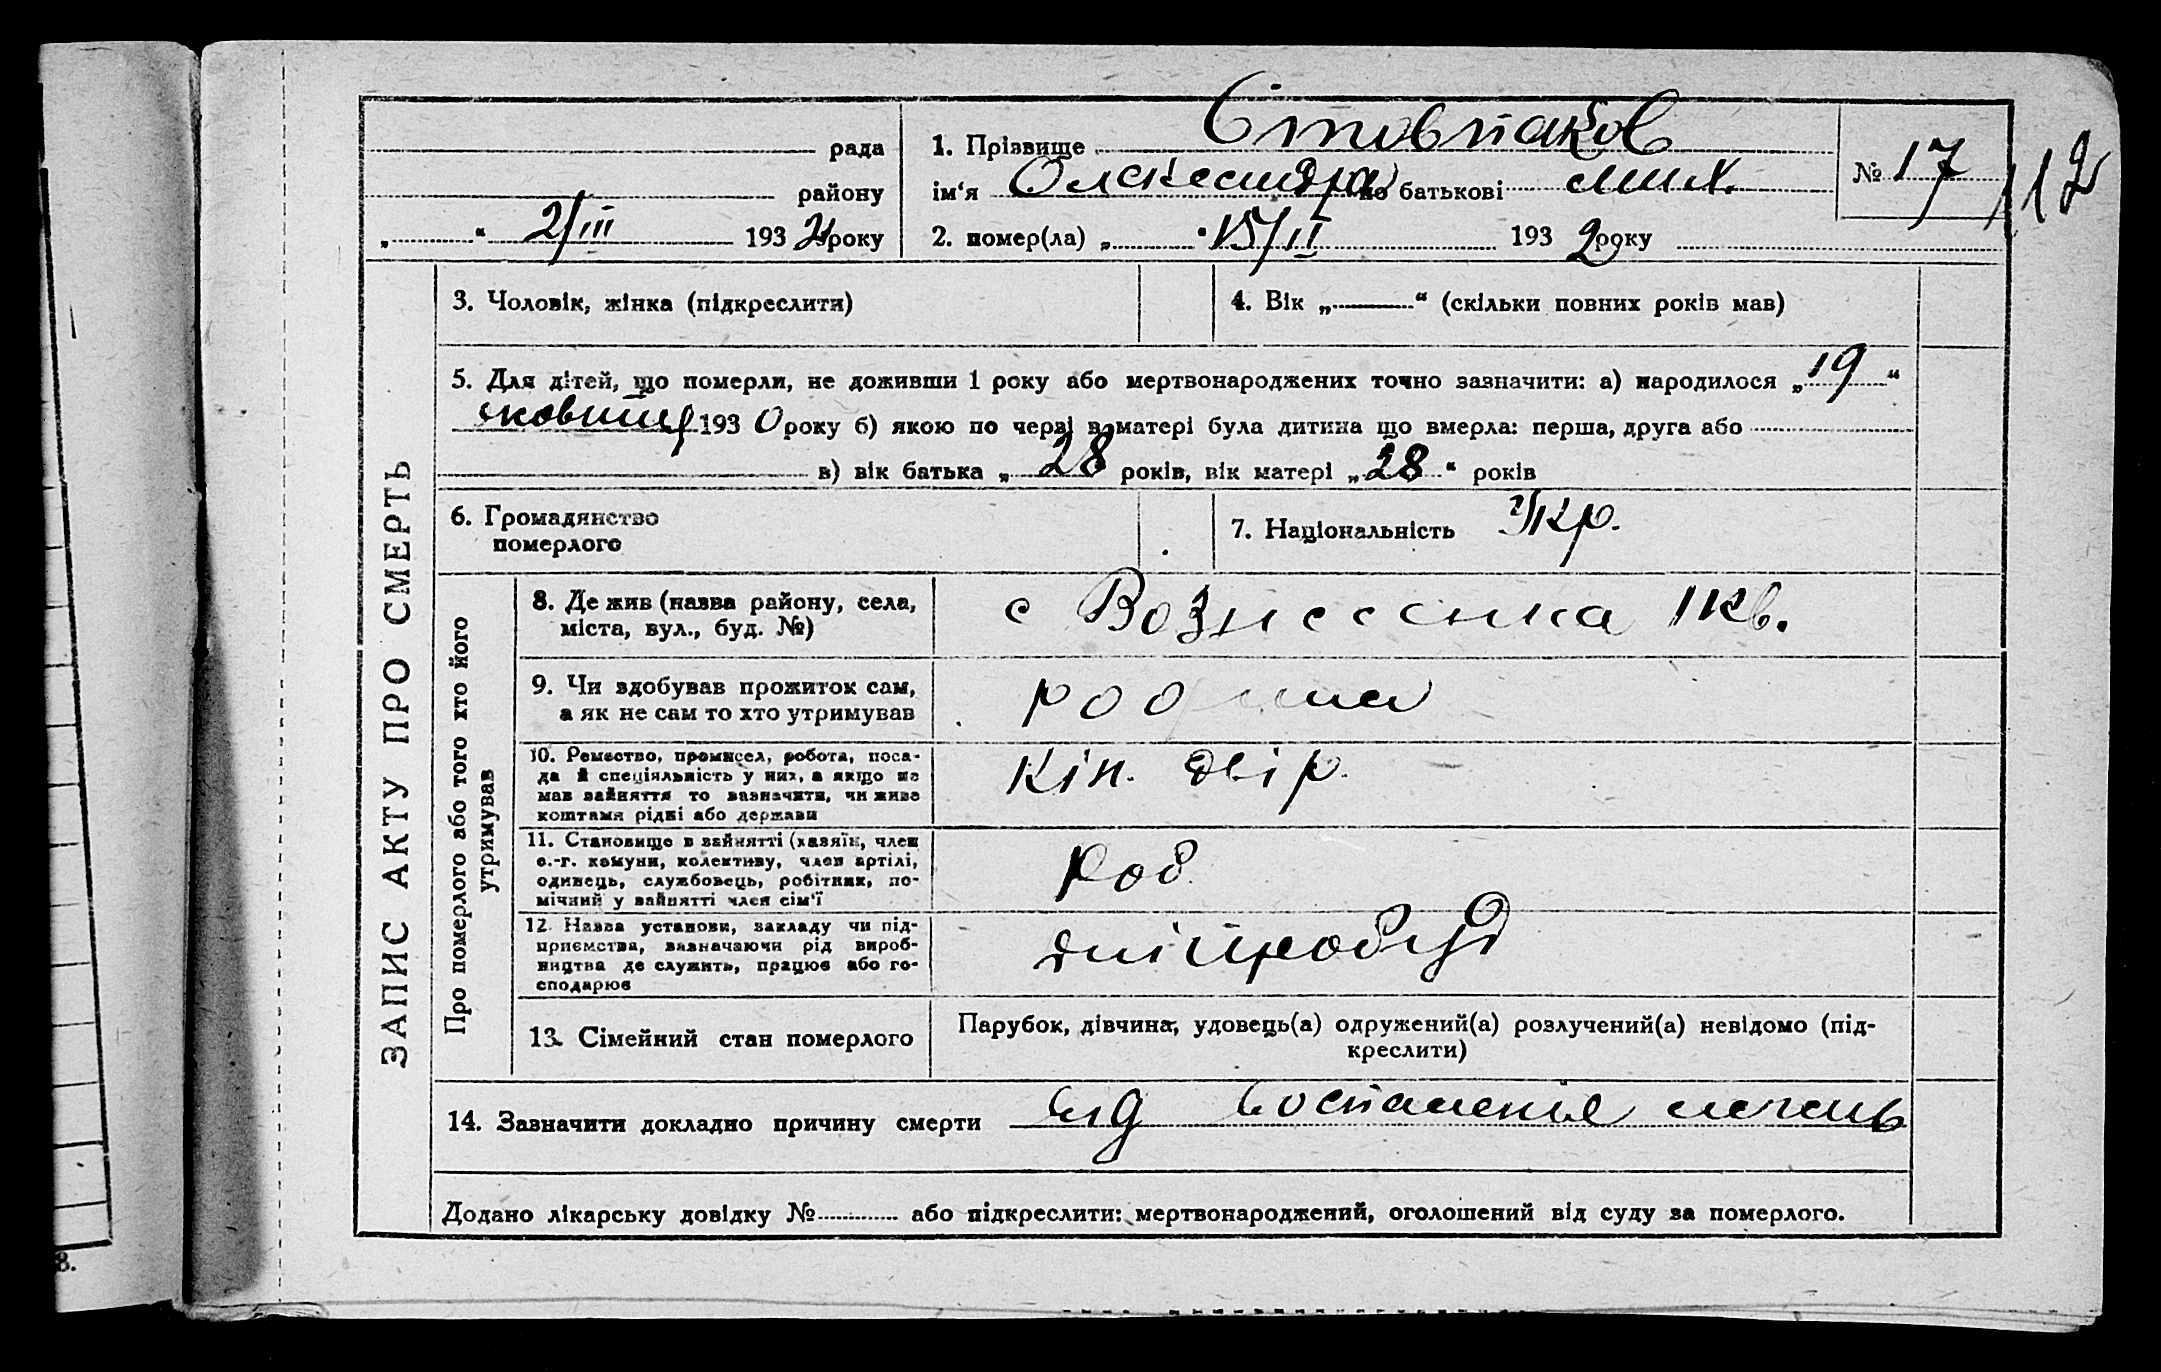 рада
району
„ “ 2/III 1932 року
1. Прізвище Стовпаков
ім‘я Олександра по батькові Мих.
2. помер(ла) „ “ 15/II 1932 року
№ 17
112
ЗАПИС АКТУ ПРО СМЕРТЬ
3. Чоловік, жінка (підкреслити)
4. Вік „ “ (скільки повних років мав)
5. Для дітей, що померли, не доживши 1 року або мертвонароджених точно зазначити: а) народилося „19“
1930 року б) якою по черзі в матері була дитина що вмерла: перша, друга або
в) вік батька „28 років, вік матері „28“ років
6. Громадянство
померлого
7. Національність Укр.
Про померлого або того хто його
утримував
8. Де жив (назва району, села,
міста, вул., буд. №)
с Вознесенка 1 кв.
9. Чи здобував прожиток сам,
а як не сам то хто утримував
родина
10. Ремество, промисел, робота, поса-
да й спеціяльність у них, а якщо не
мав зайняття то зазначити, чи живе
коштами рідні або держави
Кін. двір.
11. Становище в зайнятті (хазяїн, член
с.-г. комуни, колективу, член артілі,
одинець, службовець, робітник, по-
мічний у зайнятті член сім'ї
Роб.
12. Назва установи, закладу чи під-
приємства, зазначаючи рід вироб-
ництва де служить, працює або го-
сподарює
Дніпробуд
13. Сімейний стан померлого
Парубок, дівчина, удовець(а) одружений(а) розлучений(а) невідомо (під-
креслити)
14. Зазначити докладно причину смерти Від воспаленія легень
Додано лікарську довідку № або підкреслити: мертвонароджений, оголошений від суду за померлого.
8.